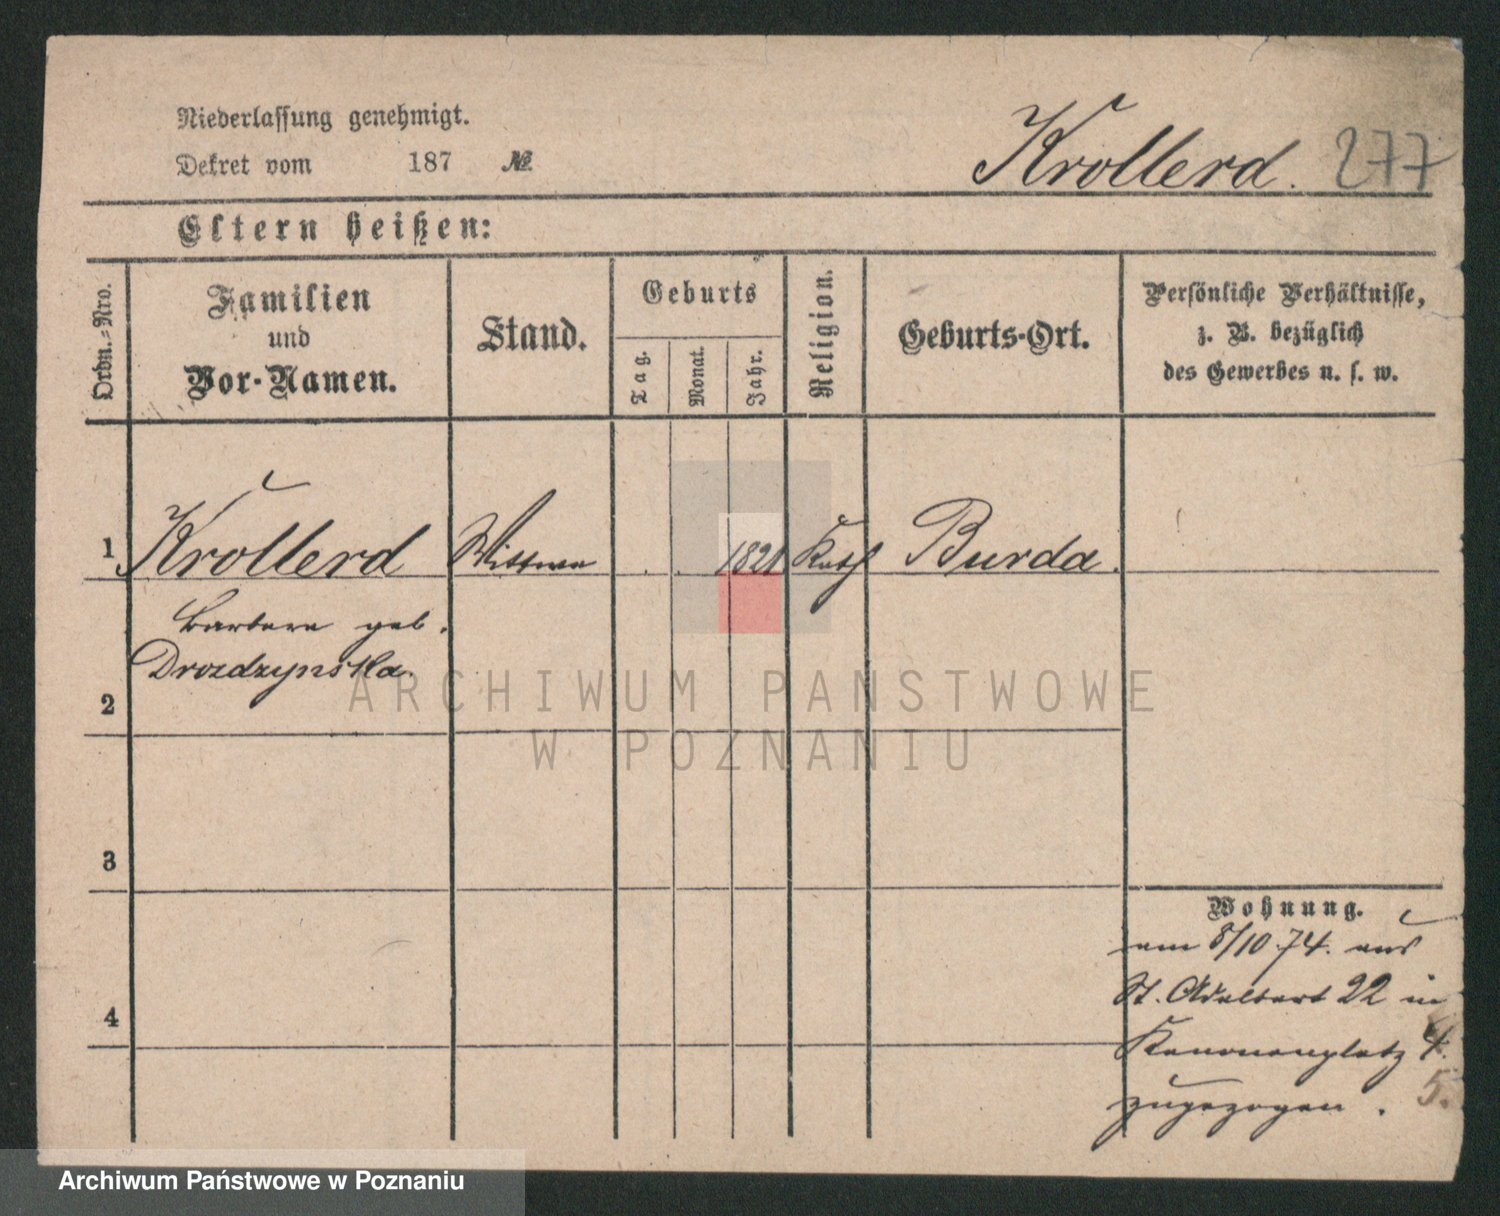 Niederlassung genehmigt.
Dekret vom 187 №
Krollerd. 277
Eltern heißen:
Ordn.-Nro.
Familien
und
Vor-Namen.
Stand.
Geburts
Tag.
Monat.
Jahr.
Religion.
Geburts-Ort.
Persönliche Verhältnisse,
z. B. bezüglich
des Gewerbes u. s. w.
1 Krollerd Wittwe 1821 Kath Burda.
Barbara geb.
Drozdzynska.
2
3
4
Wohnung.
am 8/10 74. aus
St. Adalbert 22 in
Kanonenplatz 4.
5.
zugezogen.
ARCHIWUM PAŃSTWOWE
W POZNANIU
Archiwum Państwowe w Poznaniu